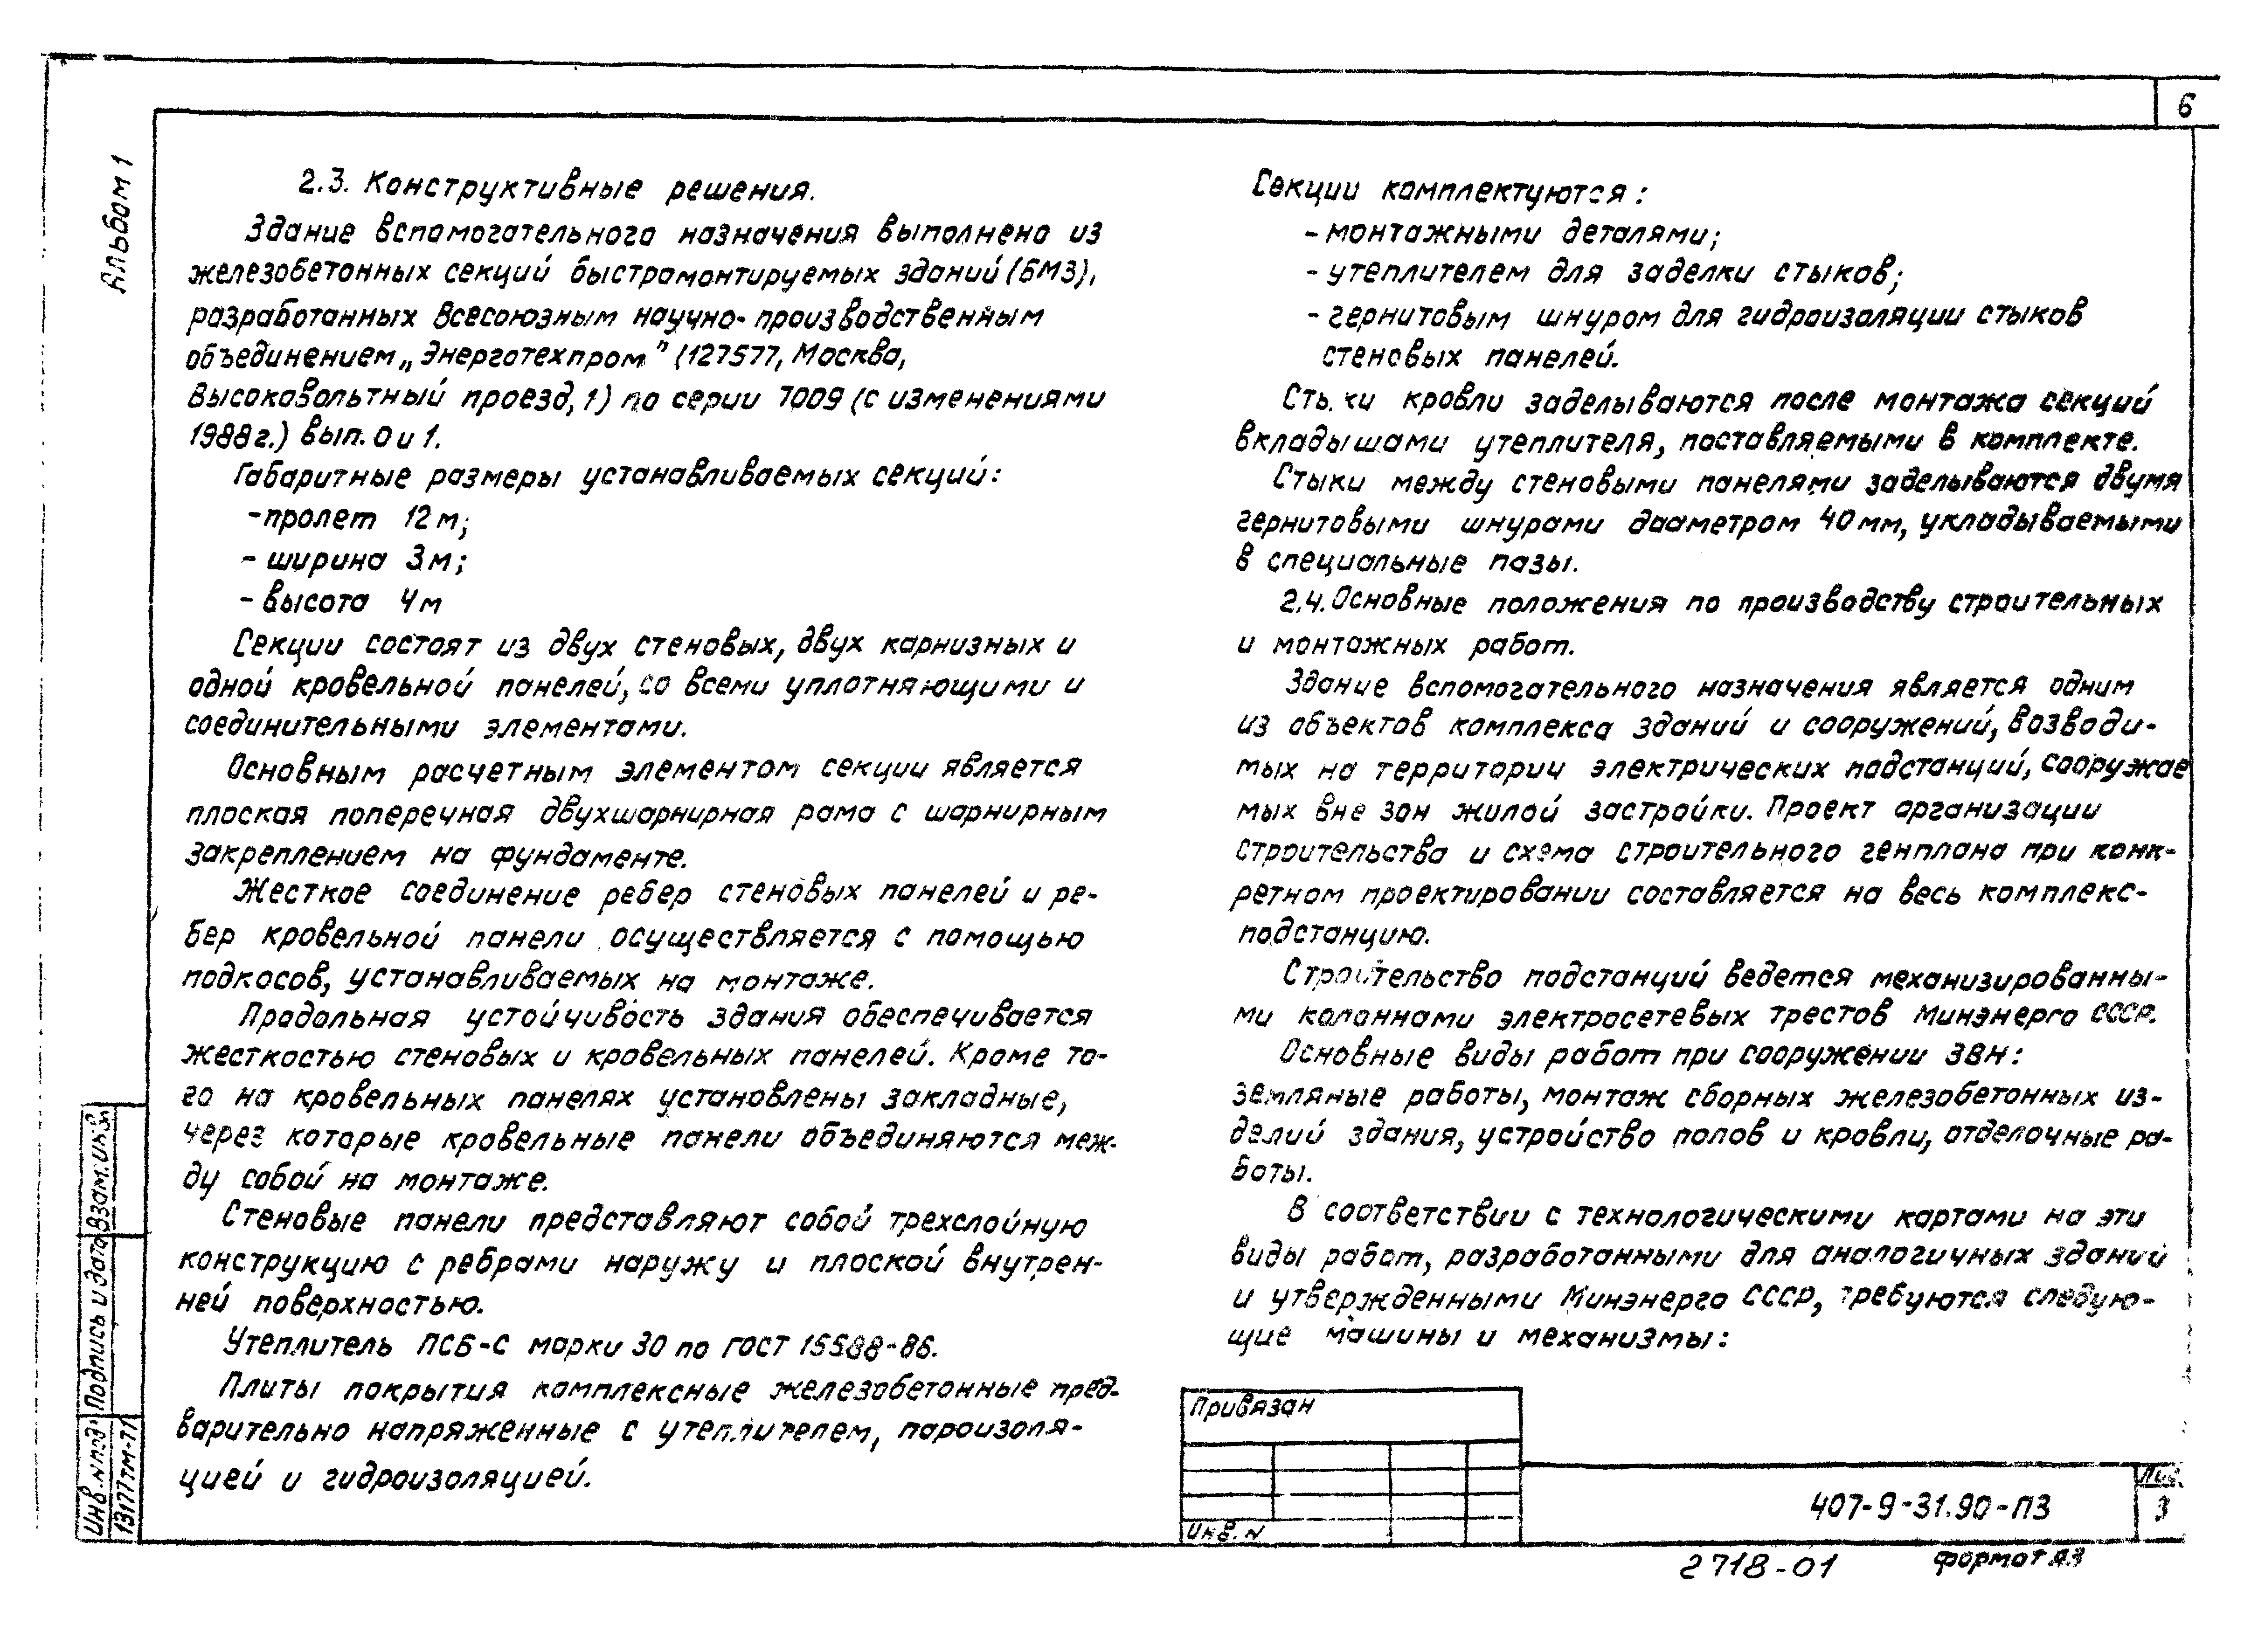 6
Альбом 1
2.3. Конструктивные решения.
Здание вспомогательного назначения выполнено из
железобетонных секций быстромонтируемых зданий (БМЗ),
разработанных Всесоюзным научно-производственным
объединением „Энерготехпром" (127577, Москва,
Высоковольтный проезд, 1) по серии 7009 (с изменениями
1988г.) вып. 0 и 1.
Габаритные размеры устанавливаемых секций:
- пролет 12 м;
- ширина 3м;
- высота 4м
Секции состоят из двух стеновых, двух карнизных и
одной кровельной панелей, со всеми уплотняющими и
соединительными элементами.
Основным расчетным элементом секции является
плоская поперечная двухшарнирная рама с шарнирным
закреплением на фундаменте.
Жесткое соединение ребер стеновых панелей и ре-
бер кровельной панели осуществляется с помощью
подкосов, устанавливаемых на монтаже.
Продольная устойчивость здания обеспечивается
жесткостью стеновых и кровельных панелей. Кроме то-
го на кровельных панелях установлены закладные,
через которые кровельные панели объединяются меж-
ду собой на монтаже.
Стеновые панели представляют собой трехслойную
конструкцию с ребрами наружу и плоской внутрен-
ней поверхностью.
Утеплитель ПСБ-С марки 30 по ГОСТ 15588-86.
Плиты покрытия комплексные железобетонные пред-
варительно напряженные с утеплителем, пароизоля-
цией и гидроизоляцией.
Секции комплектуются:
- монтажными деталями;
- утеплителем для заделки стыков;
- гернитовым шнуром для гидроизоляции стыков
стеновых панелей.
Стыки кровли заделываются после монтажа секций
вкладышами утеплителя, поставляемыми в комплекте.
Стыки между стеновыми панелями заделываются двумя
гернитовыми шнурами диаметром 40 мм, укладываемыми
в специальные пазы.
2.4. Основные положения по производству строительных
и монтажных работ.
Здание вспомогательного назначения является одним
из объектов комплекса зданий и сооружений, возводи-
мых на территории электрических подстанций, сооружае
мых вне зон жилой застройки. Проект организации
строительства и схема строительного генплана при конк-
ретном проектировании составляется на весь комплекс-
подстанцию.
Строительство подстанций ведется механизированны-
ми колоннами электросетевых трестов Минэнерго СССР.
Основные виды работ при сооружении ЗВН:
земляные работы, монтаж сборных железобетонных из-
делий здания, устройство полов и кровли, отделочные ра-
боты.
В соответствии с технологическими картами на эти
виды работ, разработанными для аналогичных зданий
и утвержденными Минэнерго СССР, требуются следую-
щие машины и механизмы:
Взам. инв.
Подпись и дата
Инв. N подл
13177ТМ-Т1
Привязан
Инв. N
407-9-31.90-ПЗ
Лис.
3
2718-01
формат А3